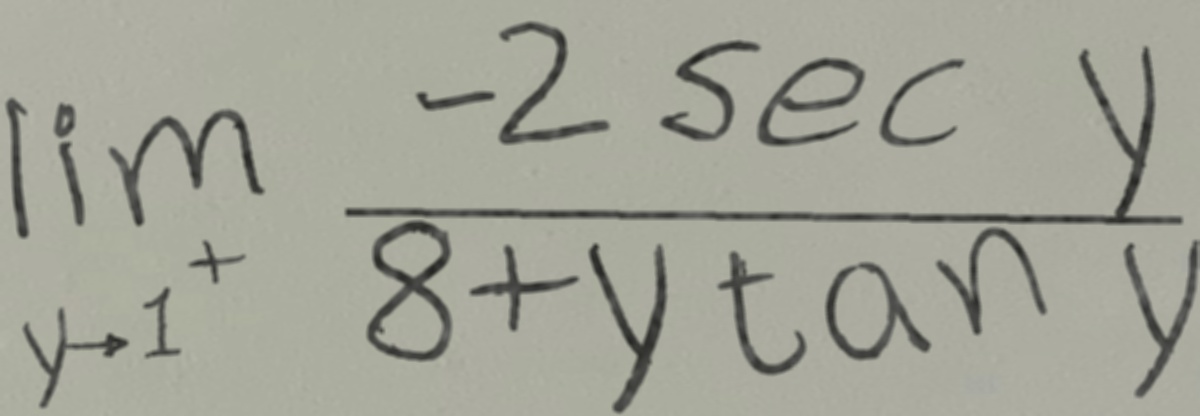 lim_{y→1^+} \frac{-2 sec y}{8+y tan y}